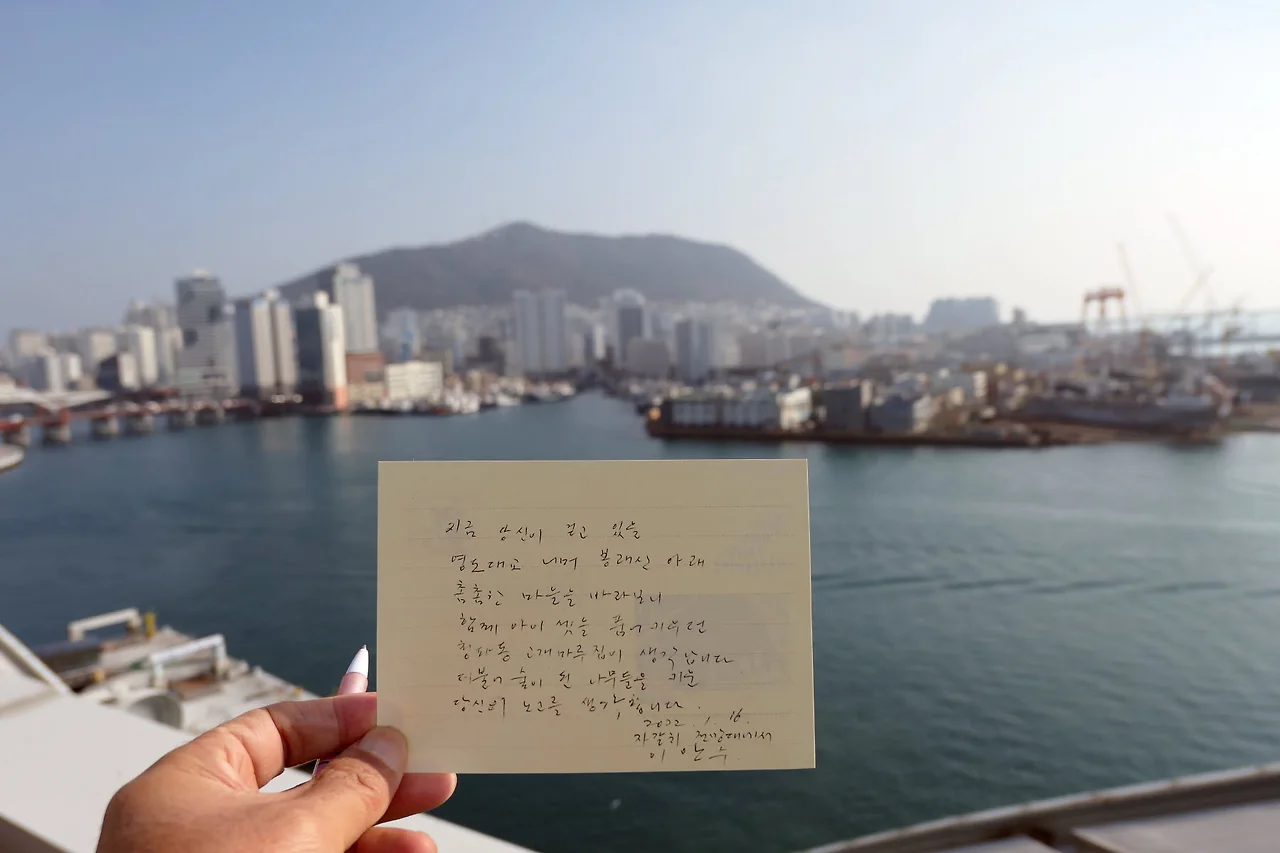 지금 당신이 걷고 있을
영도대교 너머 봉래산 아래
촘촘한 마을을 바라보니
함께 아이 셋을 품어 키우던
청파동 고개마루집이 생각납니다
더불어 숲이 된 나무들을 키운
당신의 노고를 생각합니다.
2022. 1. 16.
자갈치 전망대에서
이 안 수